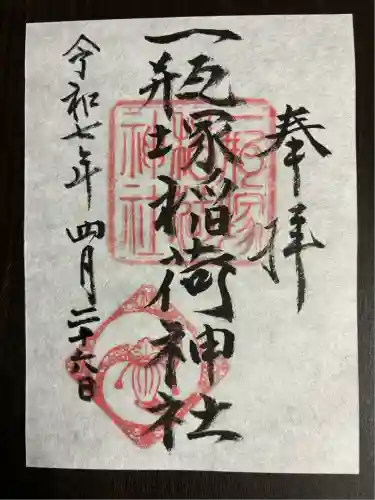 奉拝
一瓶塚稲荷神社
令和七年四月二十六日
一瓶塚
稲荷
神社